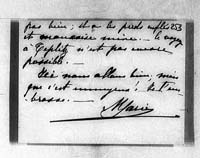 pas bien; il a les pieds enflés 253
et mauvaise mine. — le voyage
à Teplitz n'est pas encore
possible. —
Ici nous allons bien, mais
que c'est ennuyeux! Je t'em-
brasse. —
Marie